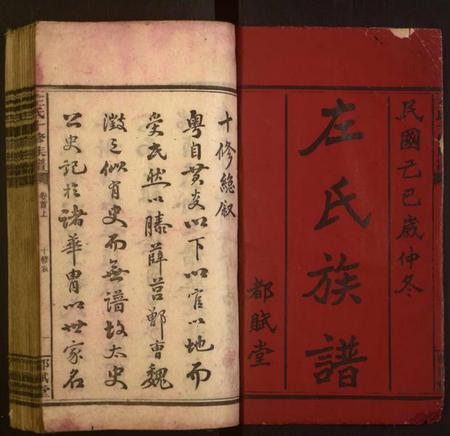 民國己巳歲仲冬
左氏族譜
都賦堂
十修總叙
粤自黄炎以下以官以地而
受氏然以滕薛莒鄆曹魏
徵之似有史而無譜故太史
公史記於諸華胄以世家名
卷首上
都賦堂